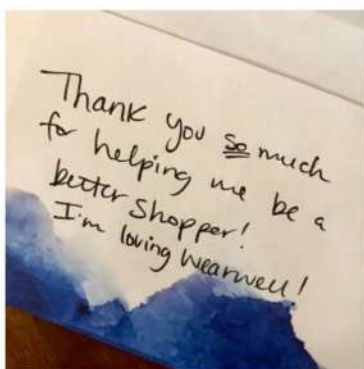 Thank you so much
for helping me be a
better shopper!
I'm loving wearwell!